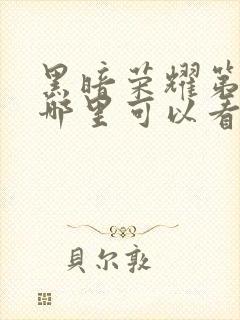 黑暗荣耀第
哪里可以看
貝尔敦